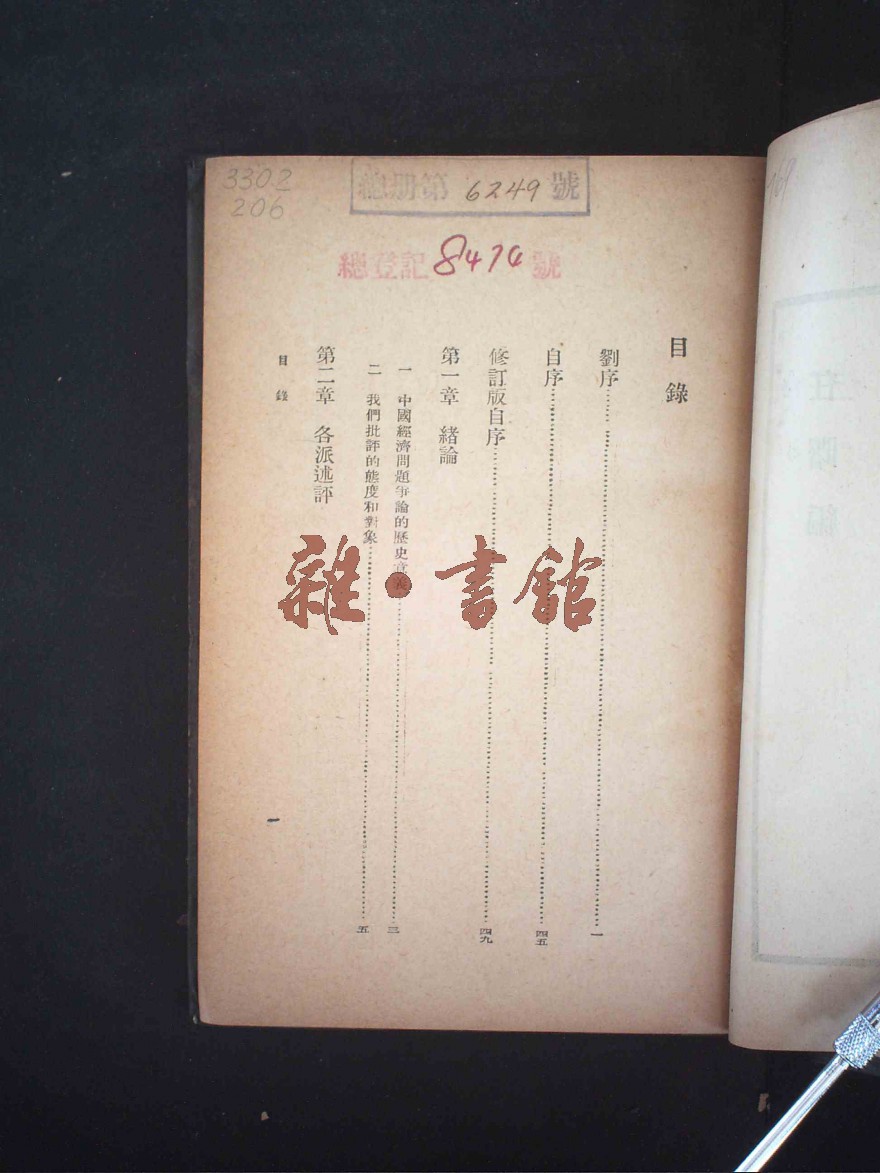 3302
206
總册第 6249 號
總登記 8474 號
目錄
劉序……一
自序……四五
修訂版自序……四九
第一章 緒論
一 中國經濟問題爭論的歷史意義……三
二 我們批評的態度和對象……五
第二章 各派述評
目錄
一
雜·書館